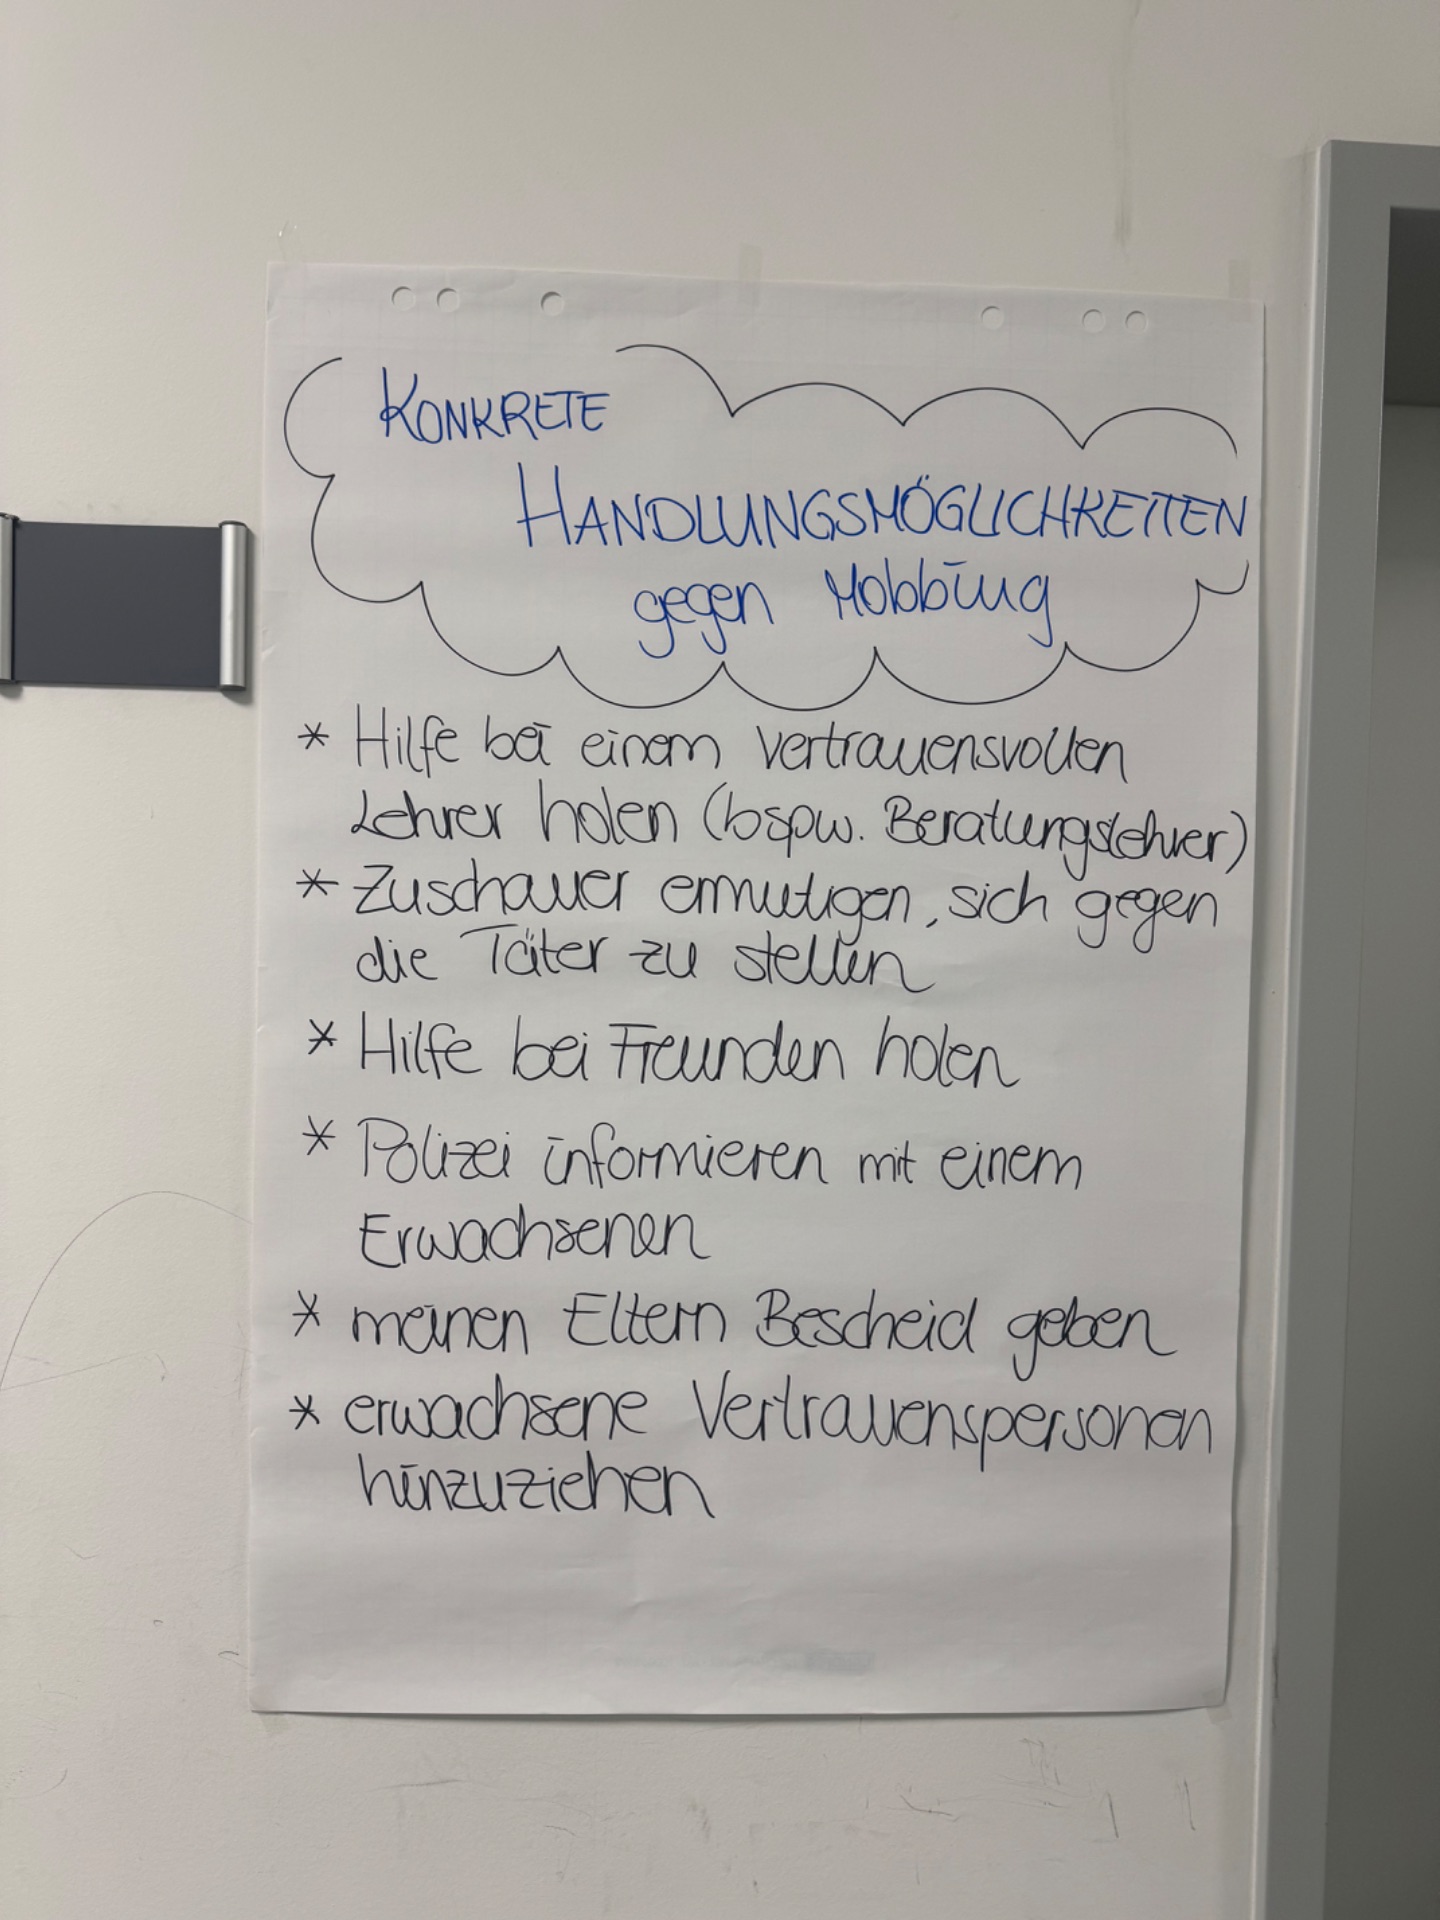 KONKRETE
HANDLUNGSMÖGLICHKEITEN
gegen Mobbing
* Hilfe bei einem vertrauensvollen
Lehrer holen (bspw. Beratungslehrer)
* Zuschauer ermutigen, sich gegen
die Täter zu stellen
* Hilfe bei Freunden holen
* Polizei informieren mit einem
Erwachsenen
* meinen Eltern Bescheid geben
* erwachsene Vertrauenspersonen
hinzuziehen